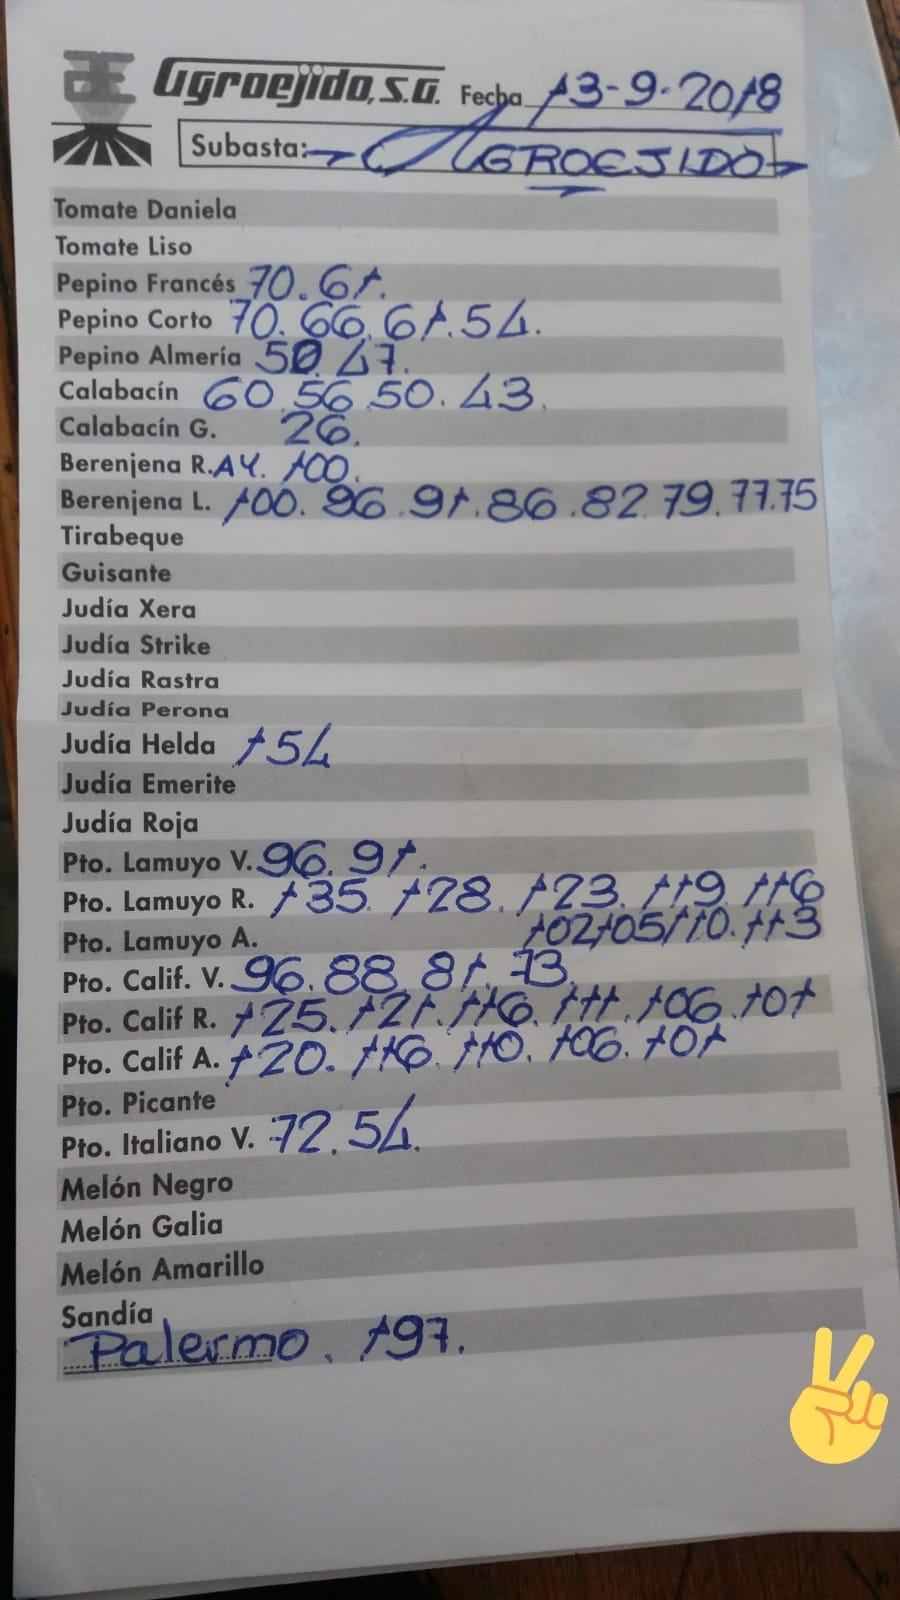 Agroejido, S.A. Fecha 13-9-2018
Subasta: AGROEJIDO
Tomate Daniela
Tomate Liso
Pepino Francés 70. 61.
Pepino Corto 70. 66. 61. 54.
Pepino Almería 50. 47.
Calabacín 60. 56. 50. 43.
Calabacín G. 26.
Berenjena R.AY. 100.
Berenjena L. 100. 96. 91. 86. 82. 79. 77. 75
Tirabeque
Guisante
Judía Xera
Judía Strike
Judía Rastra
Judía Perona
Judía Helda 154
Judía Emerite
Judía Roja
Pto. Lamuyo V. 96. 91.
Pto. Lamuyo R. 135. 128. 123. 119. 116
Pto. Lamuyo A. 102 105/110. 113
Pto. Calif. V. 96. 88. 81. 73.
Pto. Calif R. 125. 121. 116. 111. 106. 101
Pto. Calif A. 120. 116. 110. 106. 101
Pto. Picante
Pto. Italiano V. 72. 54.
Melón Negro
Melón Galia
Melón Amarillo
Sandía
Palermo. 197.